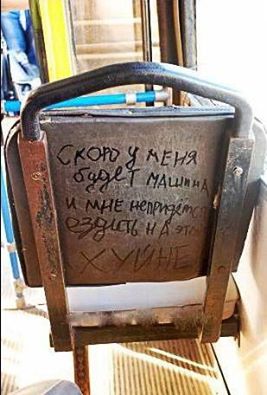 СКОРО У МЕНЯ
будет МАШИНА
и МНЕ НЕПРИДЁТСЯ
ездеть НА этой
ХУЙНЕ